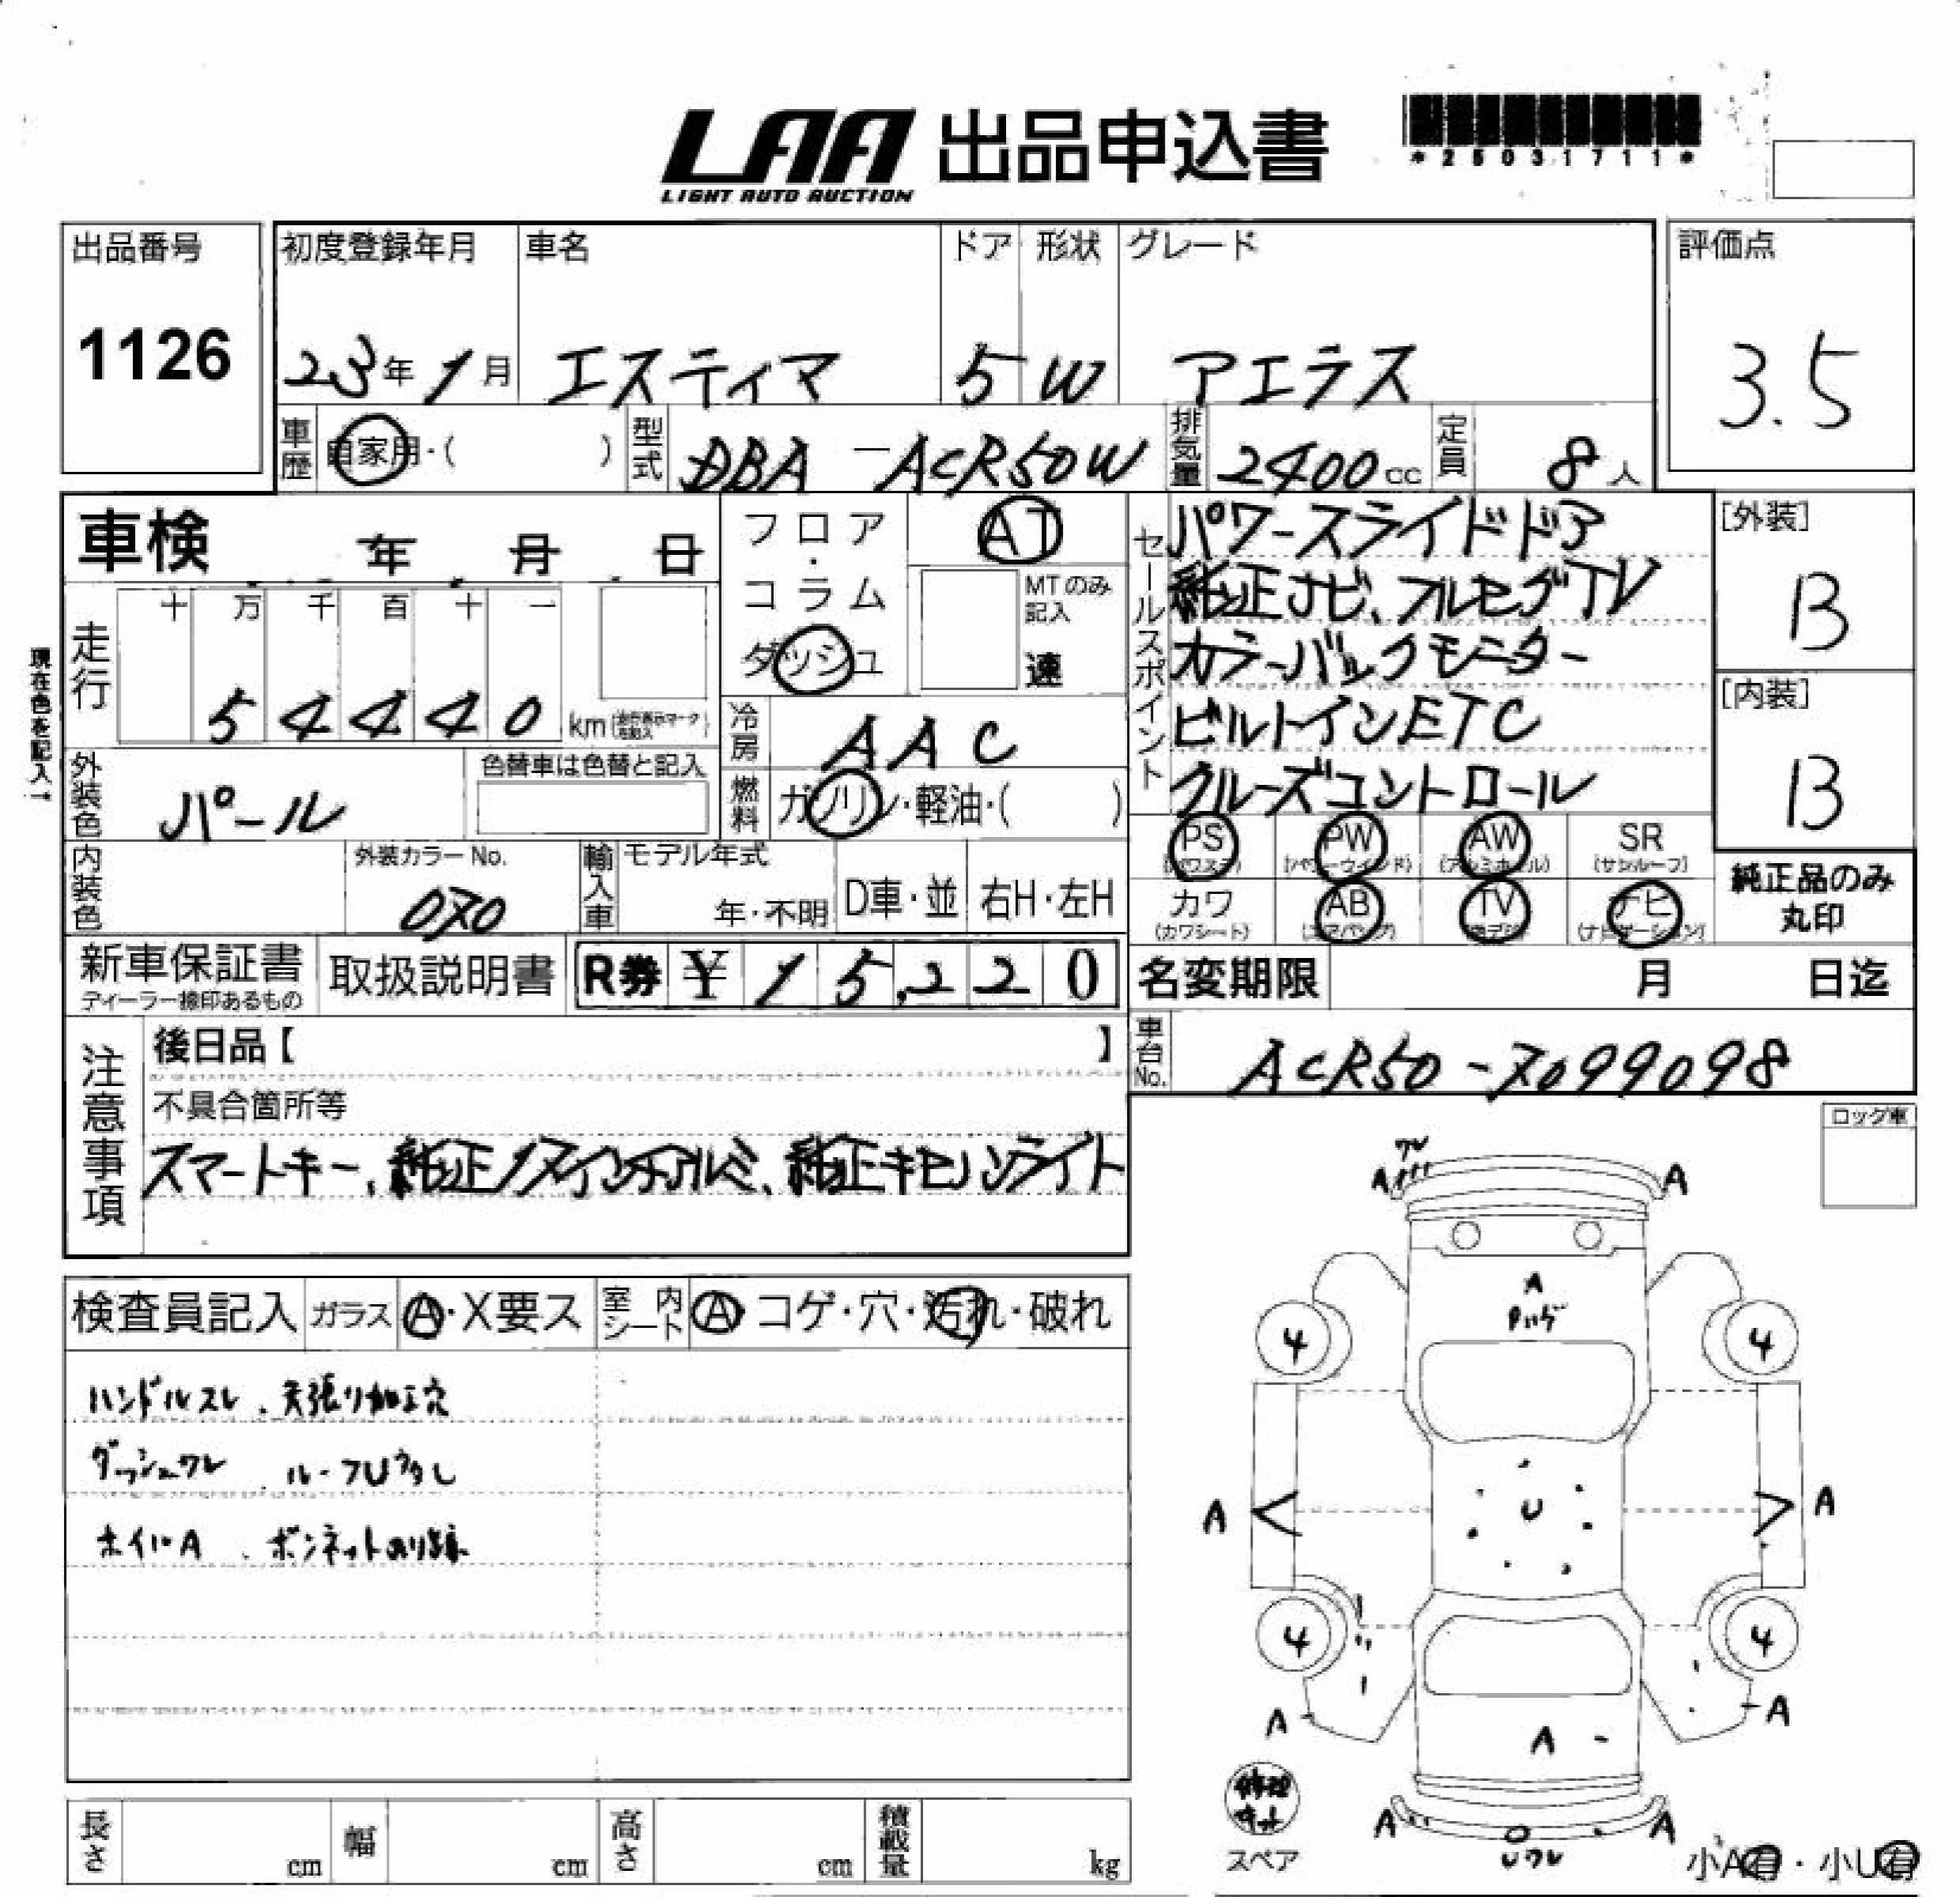 LAA 出品申込書
LIGHT AUTO AUCTION
*25031711*
出品番号
1126
初度登録年月 車名 ドア 形状 グレード
23年1月 エスティマ 5 W アエラス
評価点
3.5
車歴 自家用・( ) 型式 DBA-ACR50W 排気量 2400cc 定員 8人
車検 年 月 日
フロア・コラム ダッシュ
AT
MTのみ記入
速
現在色を記入→
走行 十 万 千 百 十 一
5 4 4 4 0 km
冷房 AAC
燃料 ガソリン・軽油・( )
外装色 パール
色替車は色替と記入
内装色
外装カラーNo.
070
輸入車 モデル年式
年・不明 D車・並 右H・左H
セールスポイント
パワースライドドア
純正ナビ、フルセグTV
カラーバックモニター
ビルトインETC
クルーズコントロール
[外装]
B
[内装]
B
PS (パワステ) PW (パワーウインド) AW (アルミホイル) SR (サンルーフ)
カワ (カワシート) AB (エアバッグ) TV ナビ (ナビゲーション)
純正品のみ
丸印
新車保証書
ディーラー捺印あるもの
取扱説明書 R券 ¥15,220
名変期限 月 日迄
車台No. ACR50-7099098
注意事項
後日品【 】
不具合箇所等
スマートキー、純正17インチアルミ、純正キセノンライト
検査員記入 ガラス A・X要ス 室内シート A・コゲ・穴・汚れ・破れ
ハンドルスレ、天張り加工穴
ダッシュワレ、ルーフU多し
ホイルA、ボンネット
長さ cm 幅 cm 高さ cm 積載量 kg
ロック車
ワレ
A A
A
Pハゲ
4 4
U
A A
4 4
A A
A
修理キット
スペア
A A
Uワレ
小A有・小U有